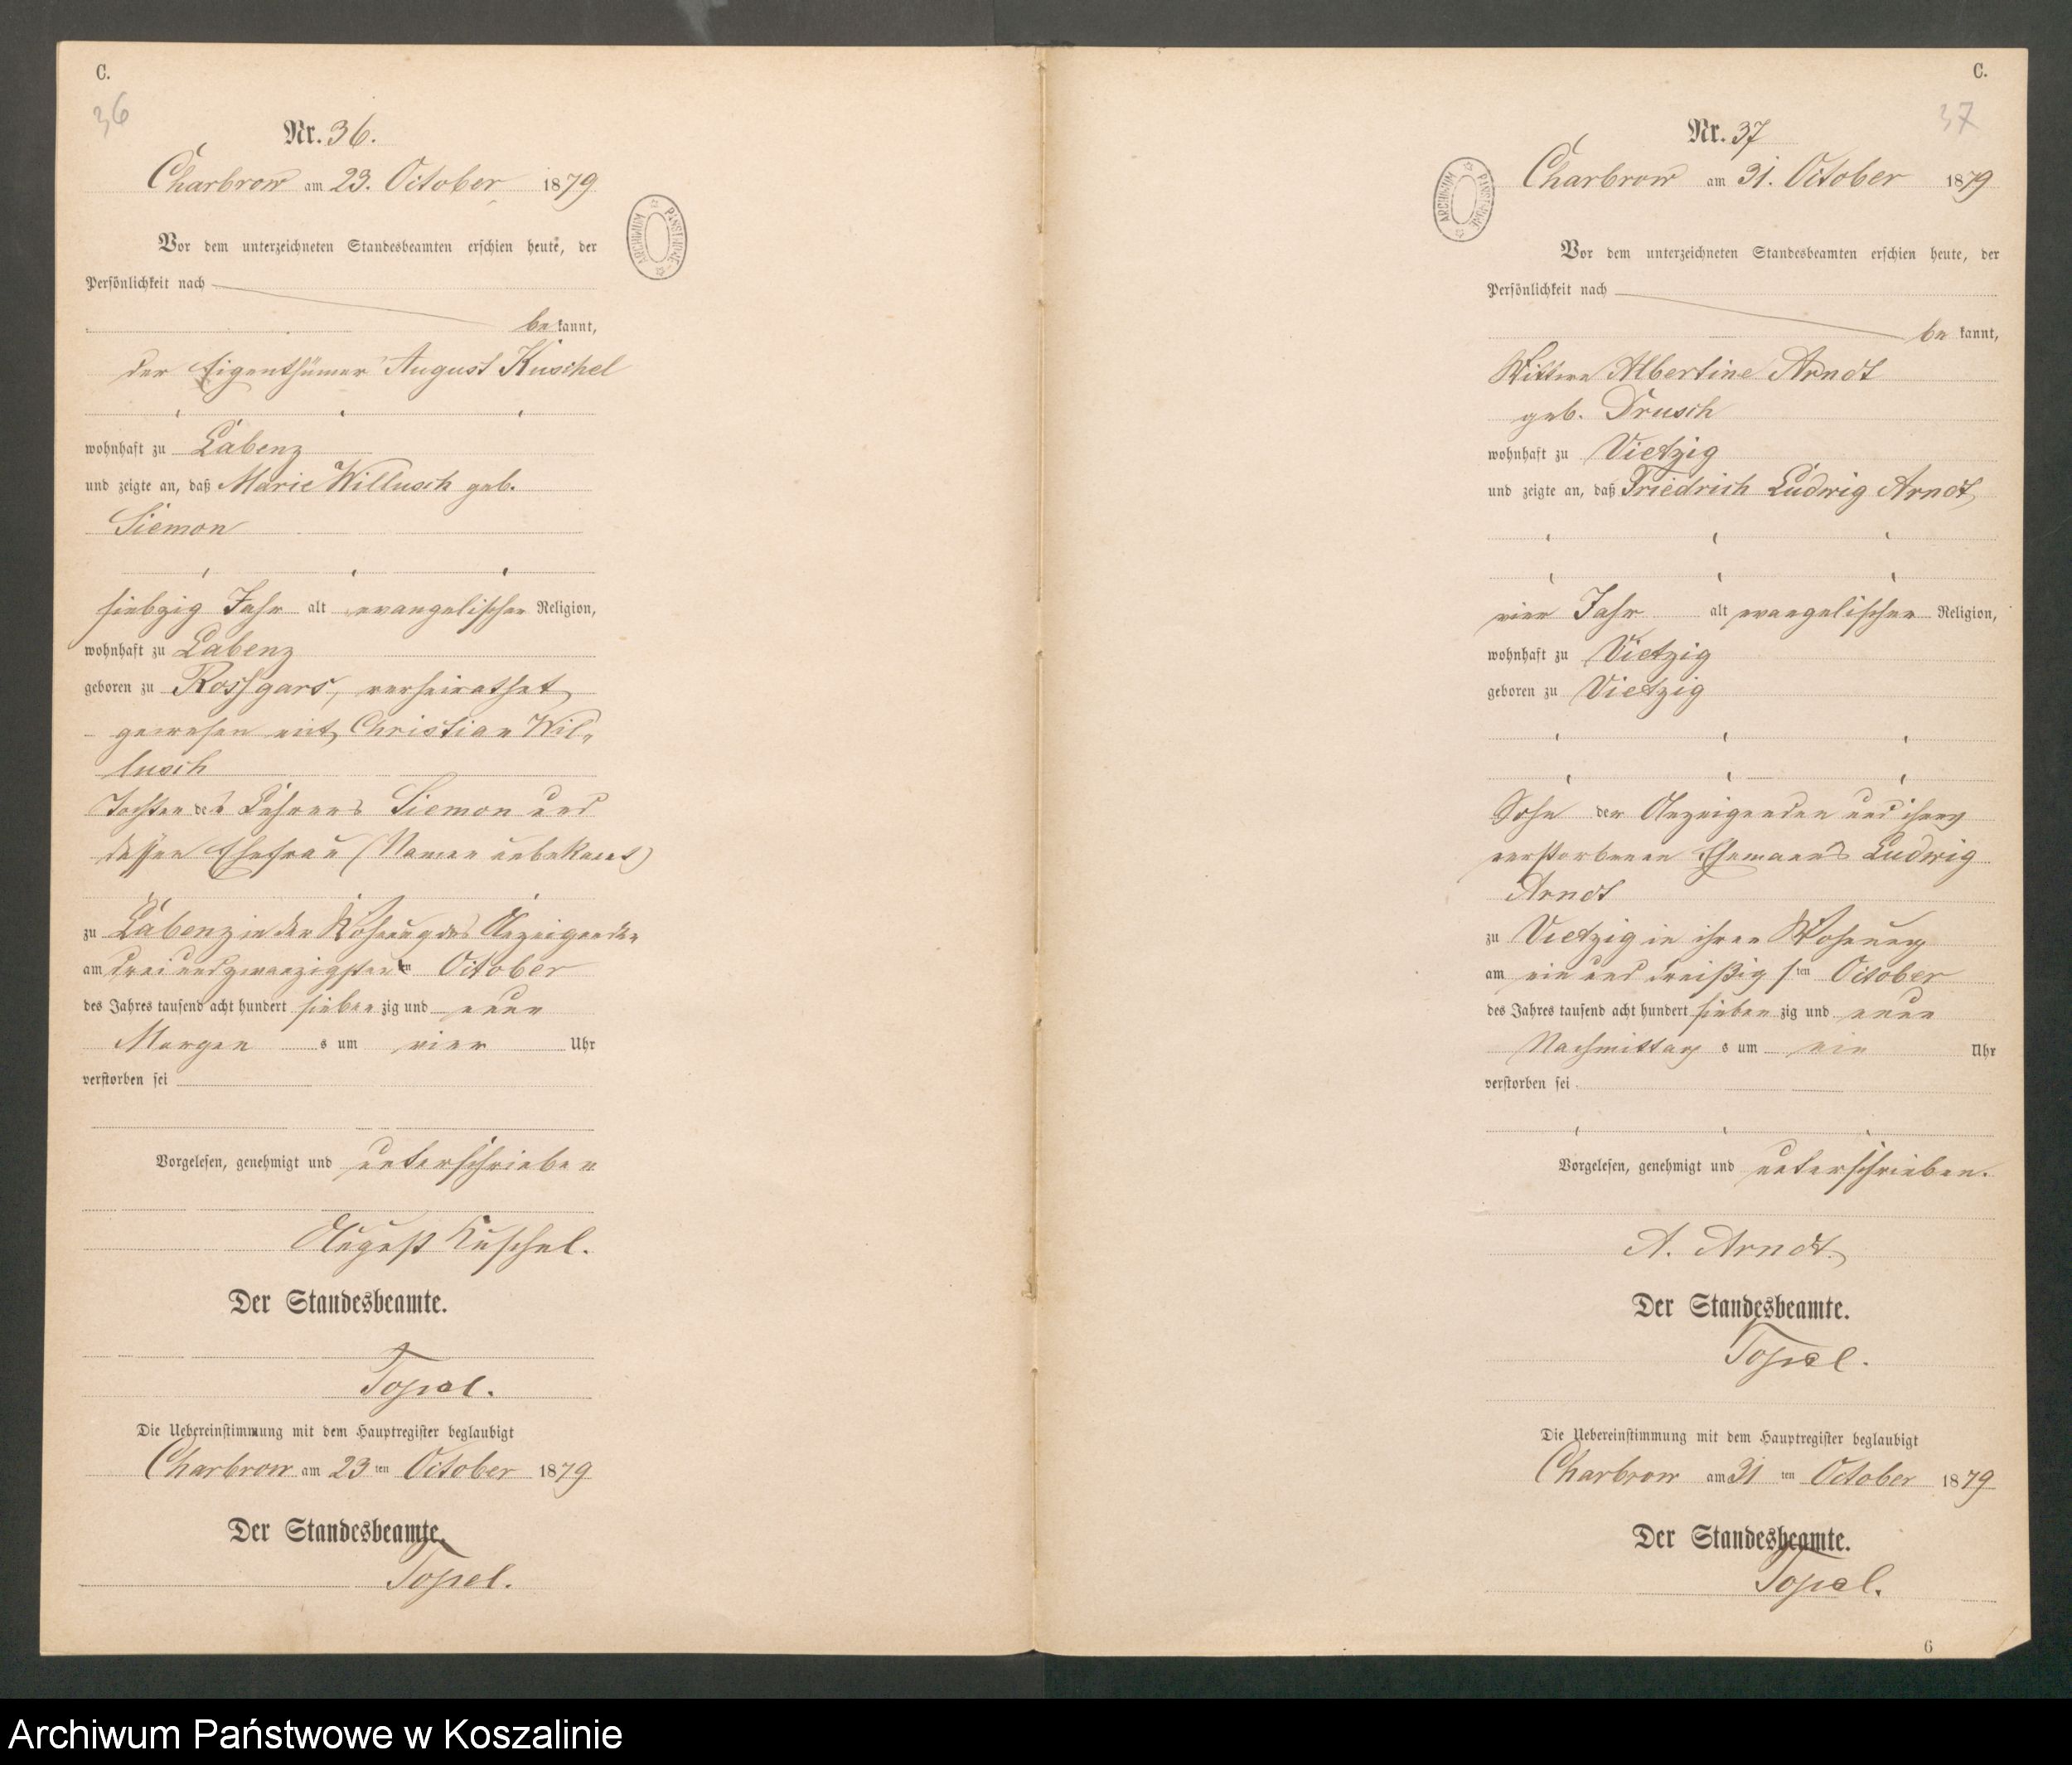 C.
36
Nr. 36.
Charbrow am 23. October 1879
ARCHIWUM PAŃSTWOWE
Vor dem unterzeichneten Standesbeamten erschien heute, der
Persönlichkeit nach
be kannt,
der Eigenthümer August Kuschel
wohnhaft zu Labenz
und zeigte an, daß Marie Willusch geb.
Siemon
siebzig Jahr alt evangelischer Religion,
wohnhaft zu Labenz
geboren zu Rossgars, verheirathet
gewesen mit Christian Wil„
lusch
Tochter des Lehrers Siemon und
dessen Ehefrau (Namen unbekannt)
zu Labenz in der Wohnung des Anzeigenden
am drei und zwanzigsten ten October
des Jahres tausend acht hundert sieben zig und neun
Morgen s um vier Uhr
verstorben sei
Vorgelesen, genehmigt und unterschrieben
August Kuschel.
Der Standesbeamte.
Topel.
Die Uebereinstimmung mit dem Hauptregister beglaubigt
Charbrow am 23 ten October 1879
Der Standesbeamte.
Topel.
C.
37
Nr. 37
Charbrow am 31. October 1879
ARCHIWUM PAŃSTWOWE
Vor dem unterzeichneten Standesbeamten erschien heute, der
Persönlichkeit nach
be kannt,
Wittwe Albertine Arndt
geb. Drusch
wohnhaft zu Vietzig
und zeigte an, daß Friedrich Ludwig Arndt
vier Jahr alt evangelischer Religion,
wohnhaft zu Vietzig
geboren zu Vietzig
Sohn der Anzeigenden und ihres
verstorbenen Ehemann's Ludwig
Arndt
zu Vietzig in ihrer Wohnung
am ein und dreißig s ten October
des Jahres tausend acht hundert sieben zig und neun
Nachmittag s um ein Uhr
verstorben sei
Vorgelesen, genehmigt und unterschrieben.
A. Arndt.
Der Standesbeamte.
Topel.
Die Uebereinstimmung mit dem Hauptregister beglaubigt
Charbrow am 31 ten October 1879
Der Standesbeamte.
Topel.
6
Archiwum Państwowe w Koszalinie